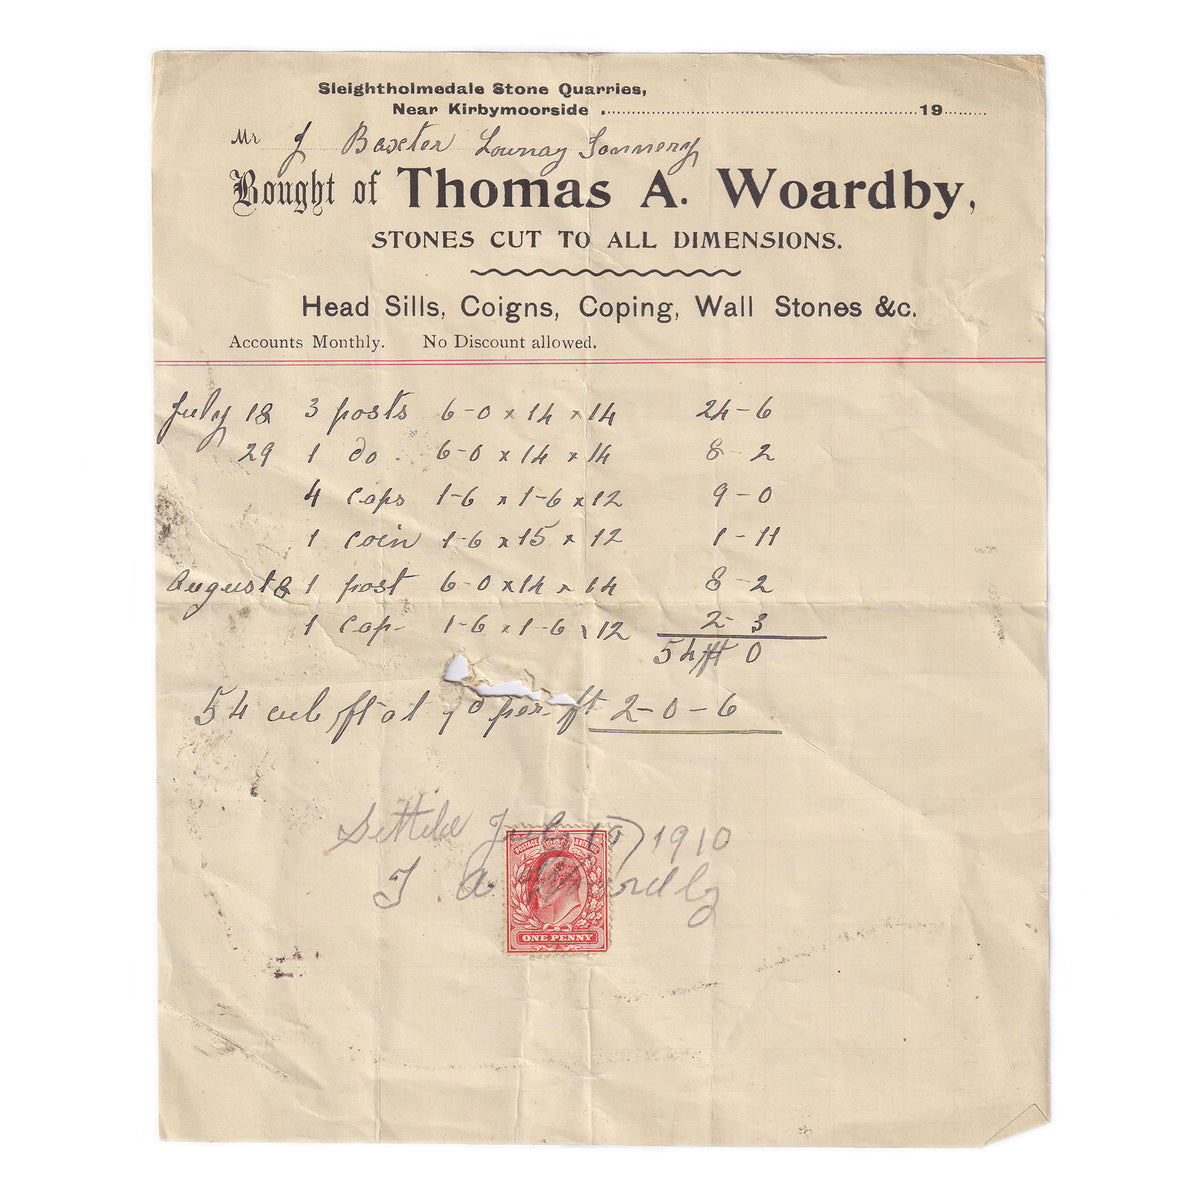 Sleightholmedale Stone Quarries,
Near Kirbymoorside ........ 19......
Mr J Baxter Lownay Tannery
Bought of Thomas A. Woardby,
STONES CUT TO ALL DIMENSIONS.
Head Sills, Coigns, Coping, Wall Stones &c.
Accounts Monthly. No Discount allowed.
July 18 3 posts 6-0 x 14 x 14 24-6
29 1 do. 6-0 x 14 x 14 8-2
4 caps 1-6 x 1-6 x 12 9-0
1 coin 1-6 x 15 x 12 1-11
August 8 1 post 6-0 x 14 x 14 8-2
1 cap- 1-6 x 1-6 x 12 2-3
54 ft 0
54 cub ft at per ft 2-0-6
Settled July 1910
T. A Woardby
POSTAGE
ONE PENNY